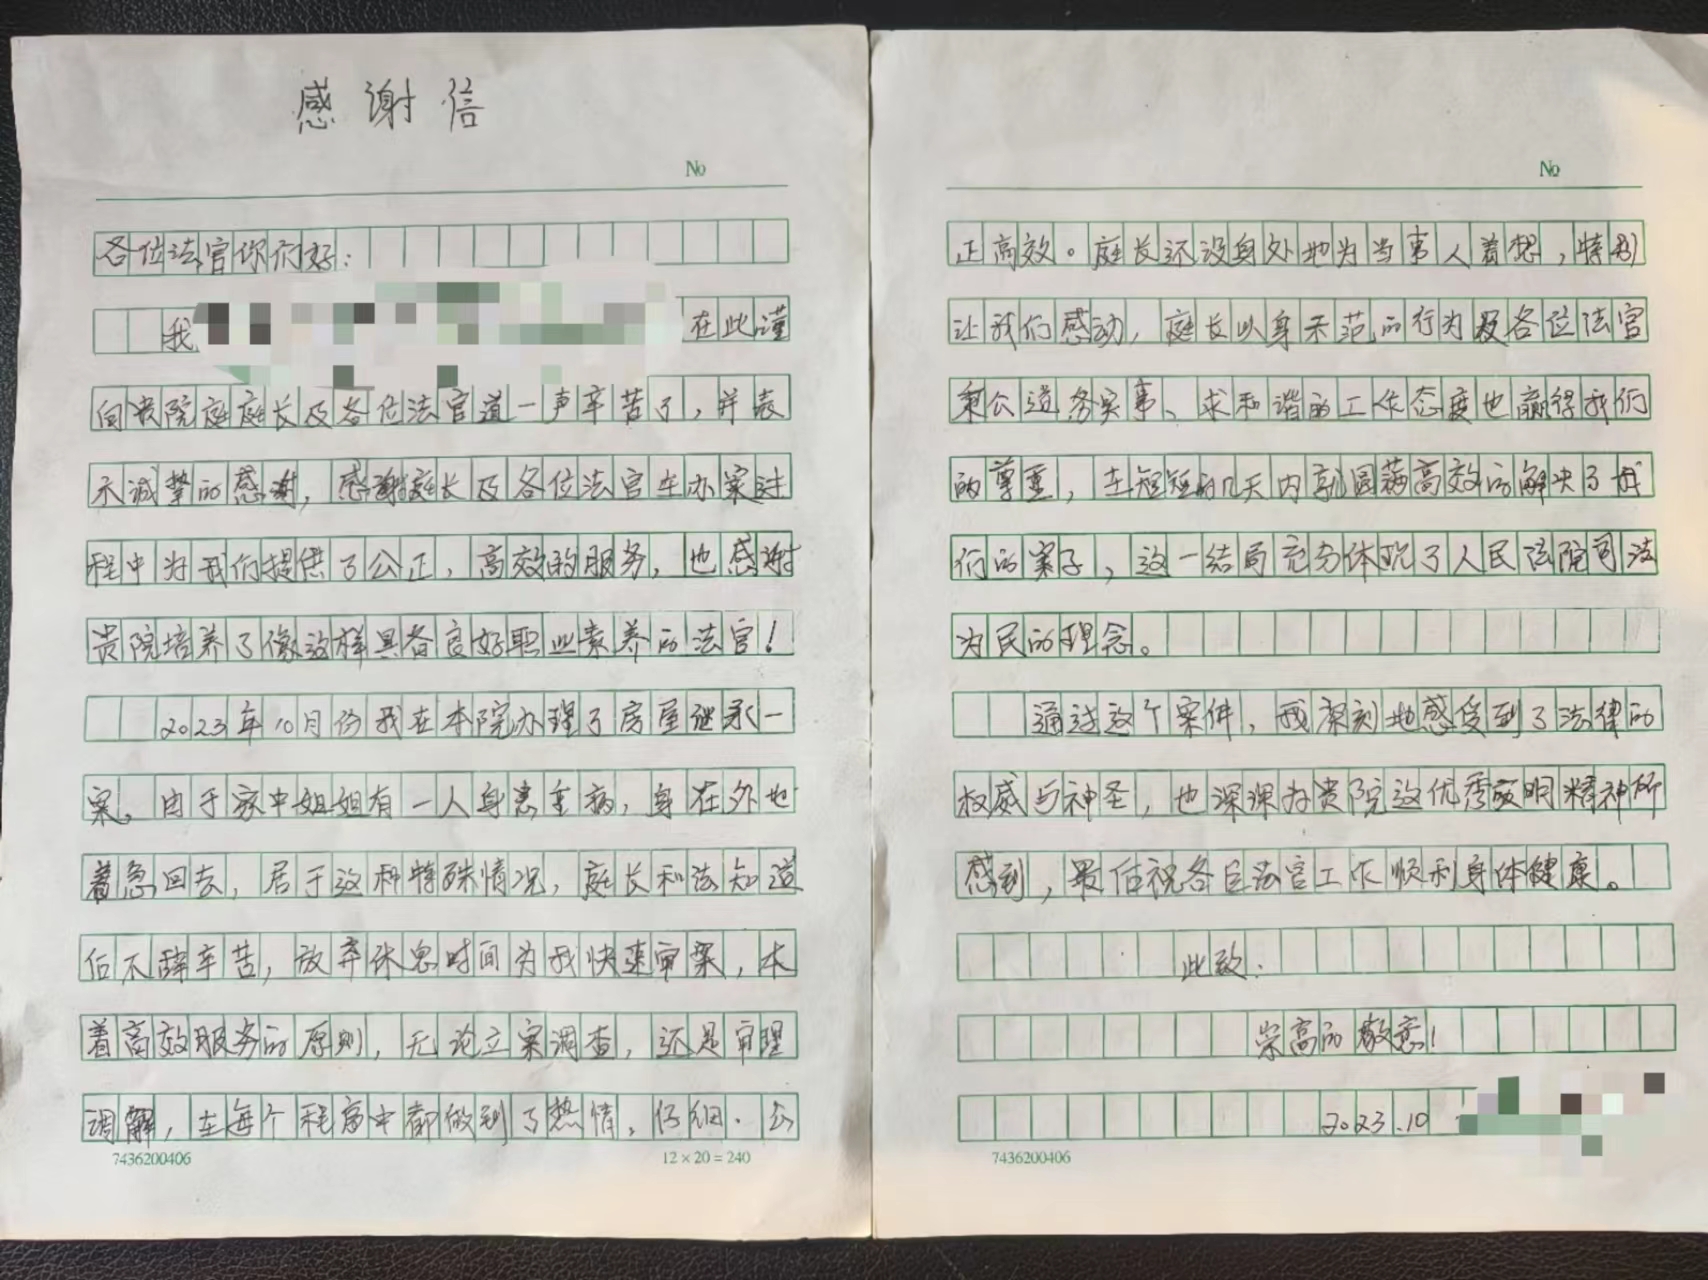 感谢信
No
各位法官你们好：
我
在此谨
向贵院庭庭长及各位法官道一声辛苦了，并表
示诚挚的感谢，感谢庭长及各位法官在办案过
程中为我们提供了公正，高效的服务，也感谢
贵院培养了像这样具备良好职业素养的法官！
2023年10月份我在本院办理了房屋继承一
案。由于家中姐姐有一人身患重病，身在外地
着急回去，居于这种特殊情况，庭长和法知道
后不辞辛苦，放弃休息时间为我快速审案，本
着高效服务的原则，无论立案调查，还是审理
调解，在每个程序中都做到了热情，仔细．公
7436200406
12×20=240
No
正高效。庭长还设身处地为当事人着想，特别
让我们感动，庭长以身示范的行为及各位法官
秉公道务实事、求和谐的工作态度也赢得我们
的尊重，在短短的几天内就圆满高效的解决了我
们的案子，这一结局充分体现了人民法院司法
为民的理念。
通过这个案件，我深刻地感受到了法律的
权威与神圣，也深深为贵院这优秀文明精神所
感到，最后祝各位法官工作顺利身体健康。
此致．
崇高的敬意！
2023.10
7436200406